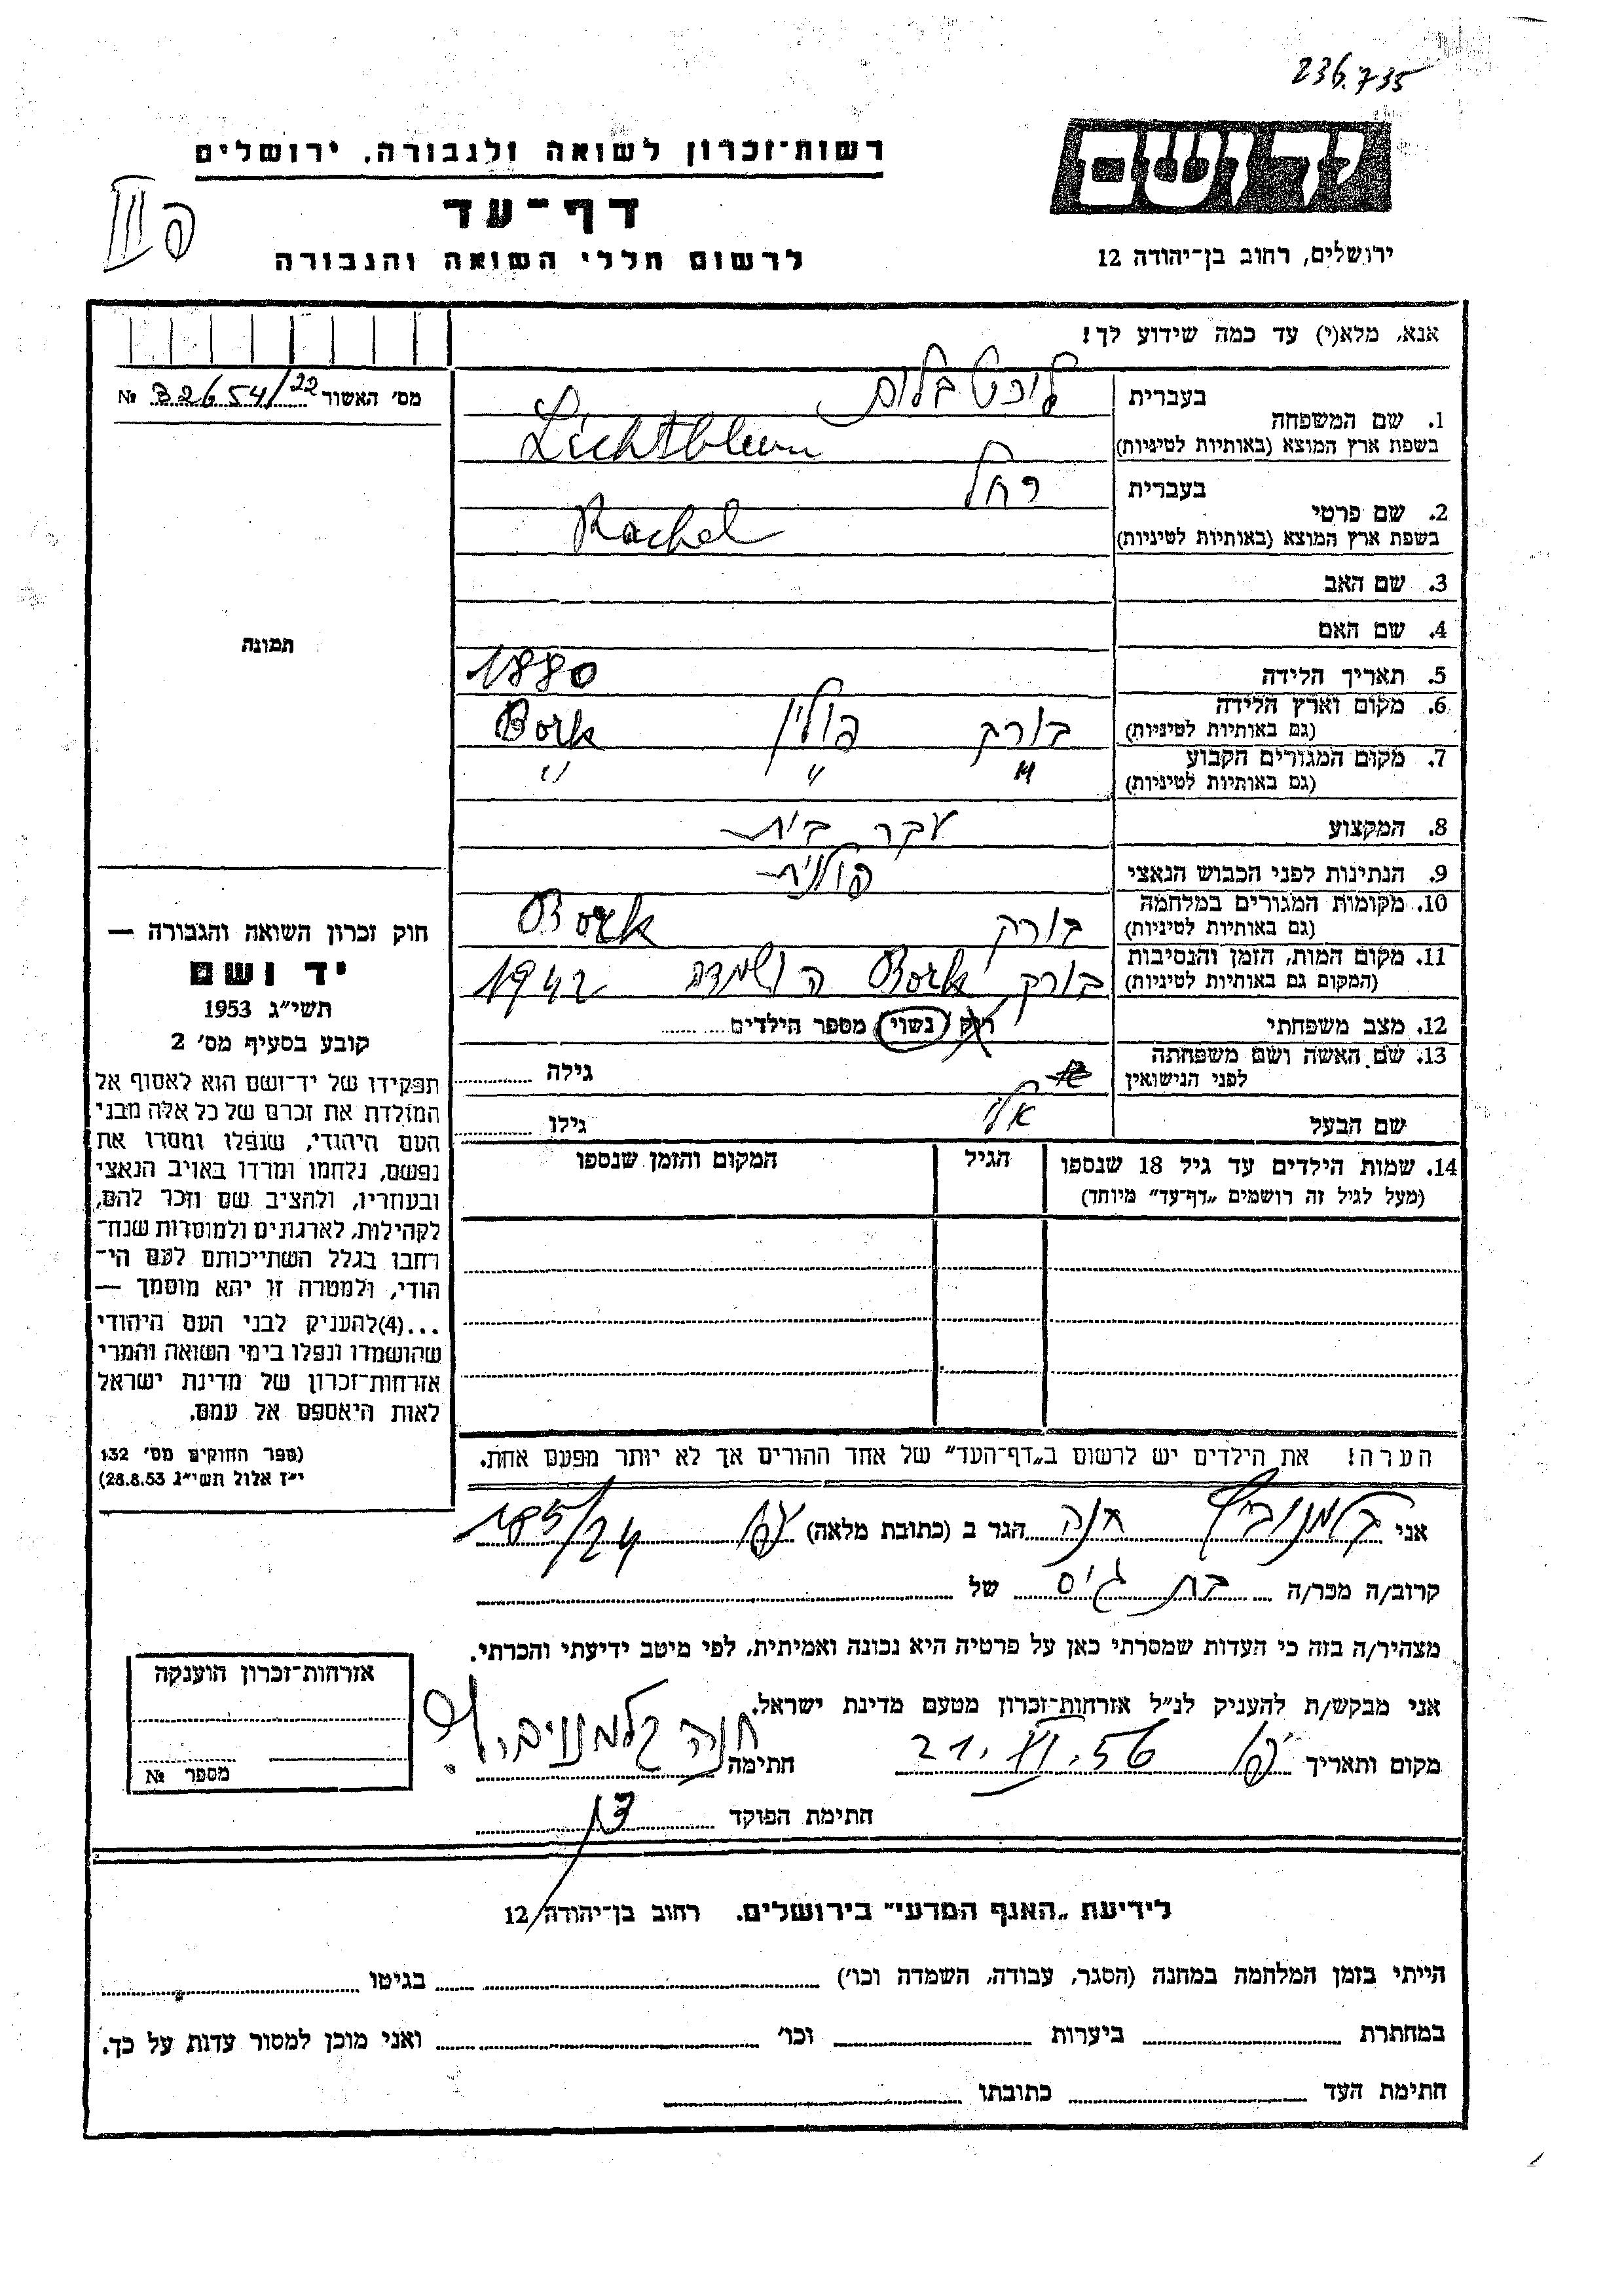 236.735
יד ושם
ירושלים, רחוב בן־יהודה 12
רשות־זכרון לשואה ולגבורה, ירושלים
דף־עד
לרשום חללי השואה והגבורה
אנא, מלא(י) עד כמה שידוע לך!
מס' האשור 32654/22 №
תמונה
1. שם המשפחה
בעברית ליכטבלום
בשפת ארץ המוצא (באותיות לטיניות) Lichtblum
2. שם פרטי
בעברית רחל
בשפת ארץ המוצא (באותיות לטיניות) Rachel
3. שם האב
4. שם האם
5. תאריך הלידה 1880
6. מקום וארץ הלידה
(גם באותיות לטיניות) בורק פולין Bork
7. מקום המגורים הקבוע
(גם באותיות לטיניות) " " "
8. המקצוע עקר בית
9. הנתינות לפני הכבוש הנאצי פולנית
10. מקומות המגורים במלחמה
(גם באותיות לטיניות) בורק Bork
11. מקום המות, הזמן והנסיבות
(המקום גם באותיות לטיניות) בורק Bork הושמדה 1942
12. מצב משפחתי רוק נשוי מספר הילדים
13. שם האשה ושם משפחתה
לפני הנישואין גילה
שם הבעל אלי גילו
14. שמות הילדים עד גיל 18 שנספו
(מעל לגיל זה רושמים „דף־עד" מיוחד)
הגיל
המקום והזמן שנספו
הערה! את הילדים יש לרשום ב„דף־העד" של אחד ההורים אך לא יותר מפעם אחת.
חוק זכרון השואה והגבורה —
יד ושם
תשי"ג 1953
קובע בסעיף מס' 2
תפקידו של יד־ושם הוא לאסוף אל
המולדת את זכרם של כל אלה מבני
העם היהודי, שנפלו ומסרו את
נפשם, נלחמו ומרדו באויב הנאצי
ובעוזריו, ולהציב שם וזכר להם,
לקהילות, לארגונים ולמוסדות שנח־
רחבו בגלל השתייכותם לעם הי־
הודי, ולמטרה זו יהא מוסמך —
...(4)להעניק לבני העם היהודי
שהושמדו ונפלו בימי השואה והמרי
אזרחות־זכרון של מדינת ישראל
לאות היאספם אל עמם.
(ספר החוקים מס' 132
י"ז אלול תשי"ג 28.8.53)
אני קלמנוביץ חנה הגר ב (כתובת מלאה) 185/24
קרוב/ה מכר/ה בת גיס של
מצהיר/ה בזה כי העדות שמסרתי כאן על פרטיה היא נכונה ואמיתית, לפי מיטב ידיעתי והכרתי.
אני מבקש/ת להעניק לנ"ל אזרחות־זכרון מטעם מדינת ישראל.
מקום ותאריך 21.VI.56 חתימה חנה קלמנוביץ
חתימת הפוקד
אזרחות־זכרון הוענקה
מספר №
לידיעת „האגף המדעי" בירושלים. רחוב בן־יהודה 12
הייתי בזמן המלחמה במחנה (הסגר, עבודה, השמדה וכו') בגיטו
במחתרת ביערות וכו' ואני מוכן למסור עדות על כך.
חתימת העד כתובתו